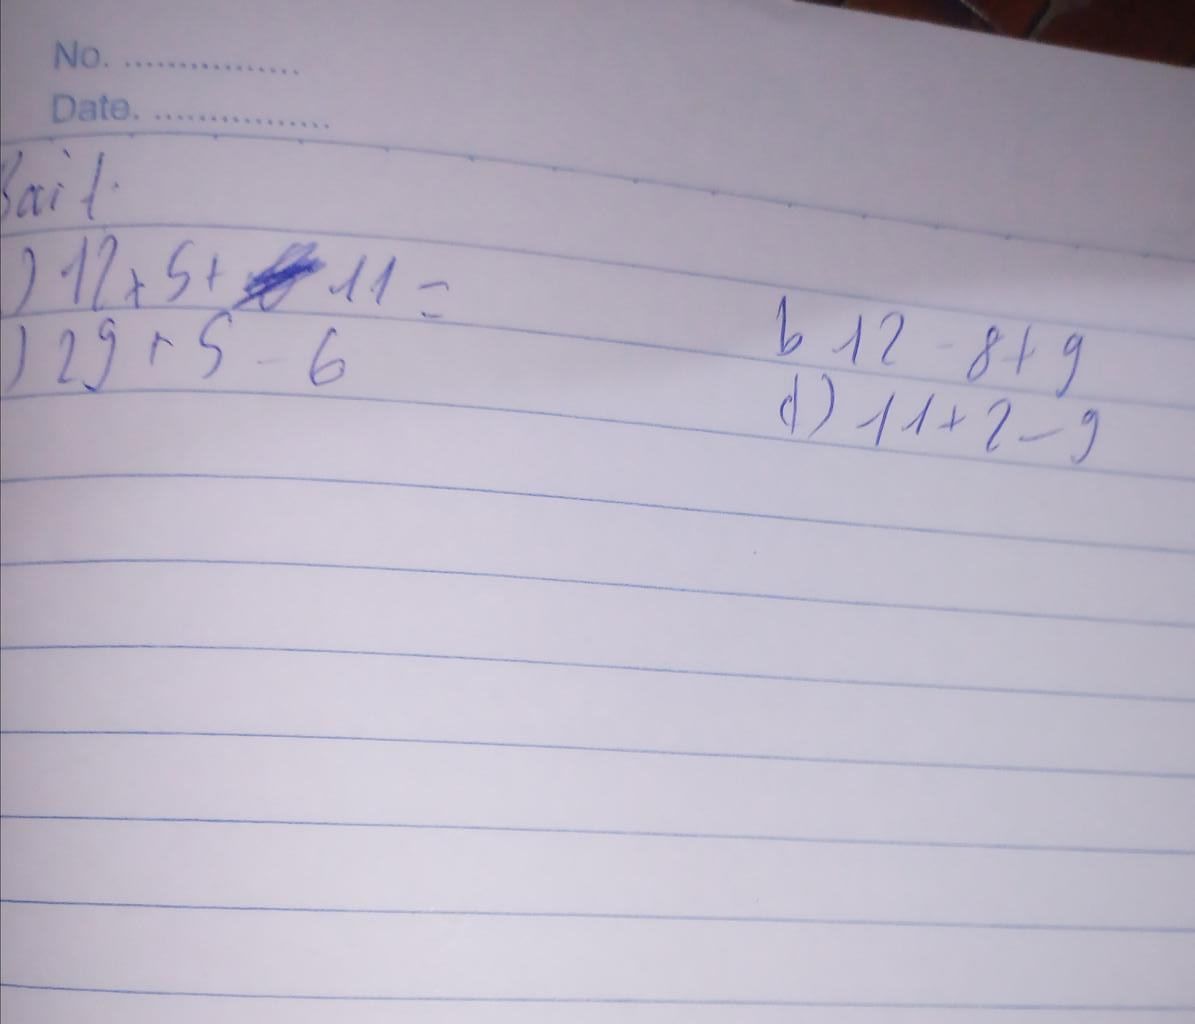 No. ................
Date. ................
Bài 1.
) 12 + 5 + 11 =
b 12 - 8 + 9
) 29 + 5 - 6
d) 11 + 2 - 9